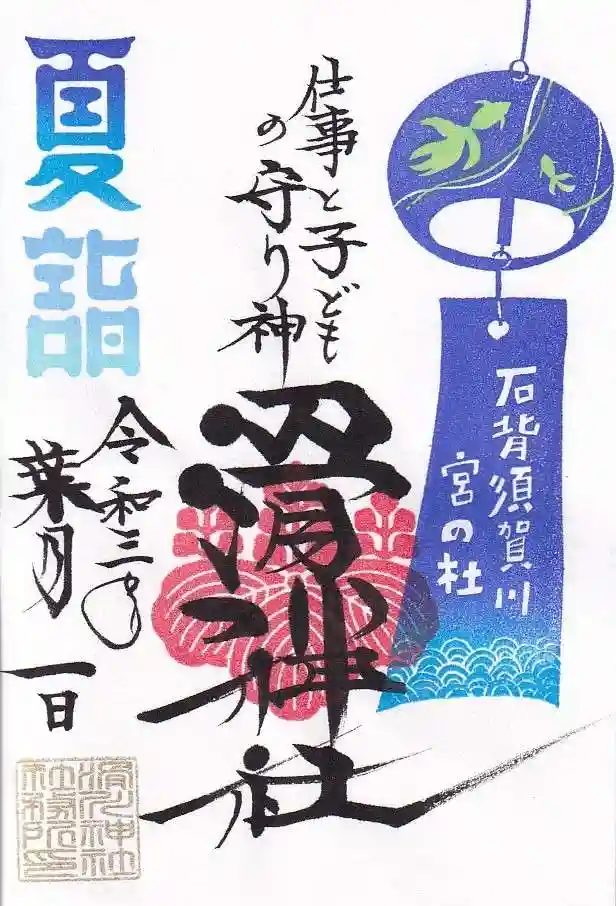 石背須賀川
宮の杜
仕事と子ども
の守り神
滑川神社
令和三年
葉月一日
夏詣
滑川神社
社務所印